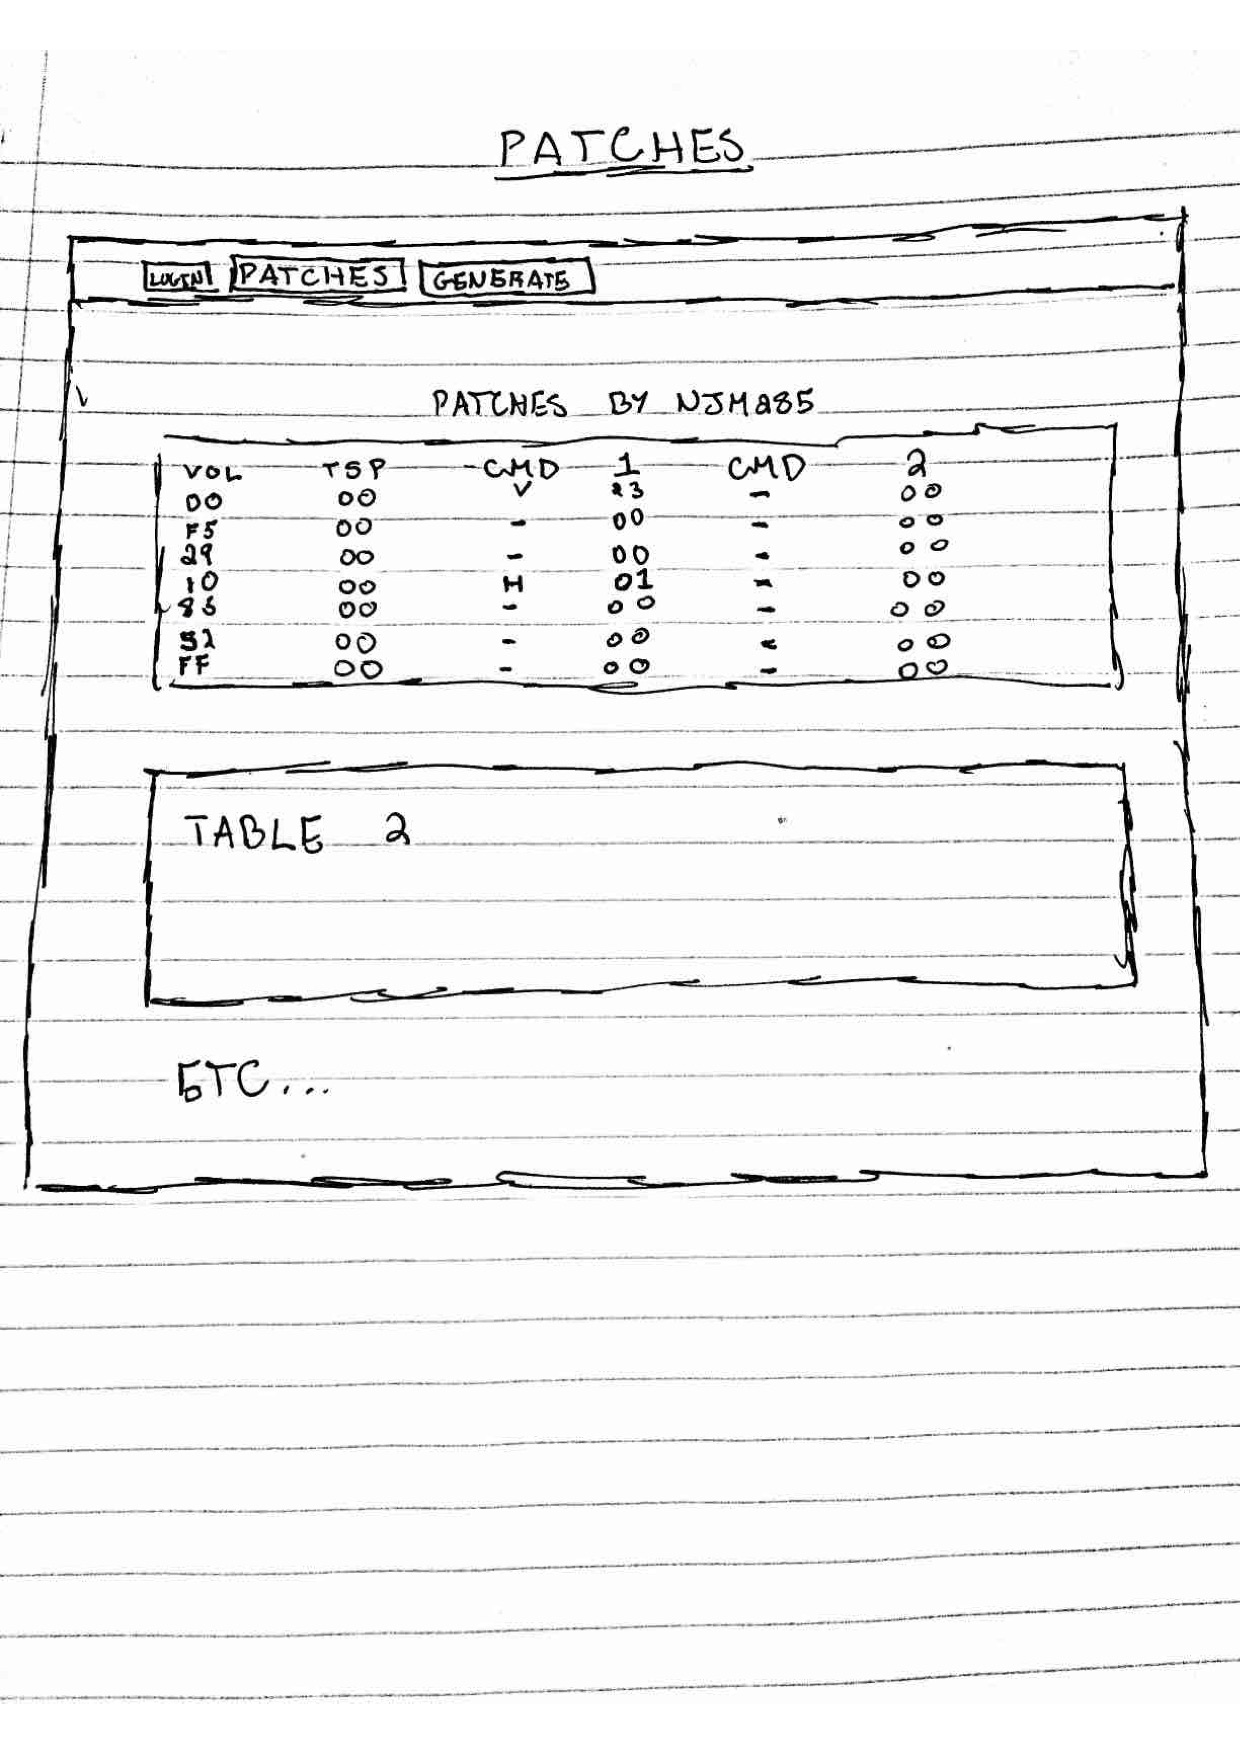 PATCHES
LOGIN PATCHES GENERATE
PATCHES BY NJM285
VOL TSP CMD 1 CMD 2
00 00 V 23 - 00
F5 00 - 00 - 00
29 00 - 00 - 00
10 00 H 01 - 00
83 00 - 00 - 00
52 00 - 00 - 00
FF 00 - 00 - 00
TABLE 2
ETC...